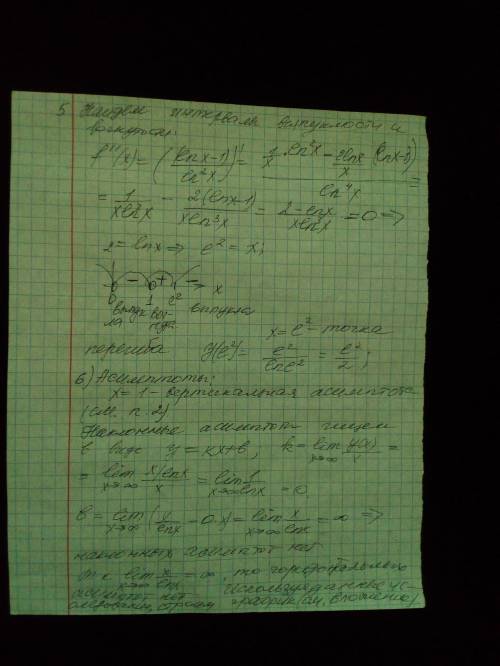 5. Найдем интервалы выпуклости и
вогнутости:
f''(x) = ((ln x - 1)/ln²x)' = (1/x · ln²x - 2ln x/x (ln x - 1))/ln⁴x =
= 1/(x ln²x) - 2(ln x - 1)/(x ln³x) = (2 - ln x)/(x ln³x) = 0 ⇒
2 = ln x ⇒ e² = x;
0 - 1 + e² - x
выпукла вогнута выпукла
x = e² - точка
перегиба y(e²) = e²/ln e² = e²/2;
6) Асимптоты:
x = 1 - вертикальная асимптота
(см. п. 2)
Наклонные асимптоты ищем
в виде y = kx + b, k = lim x→∞ y(x)/x =
= lim x→∞ (x/ln x)/x = lim x→∞ 1/ln x = 0
b = lim x→∞ (x/ln x - 0·x) = lim x→∞ x/ln x = ∞ ⇒
наклонных асимптот нет
т.к. lim x→∞ x/ln x = ∞, то горизонтальных
асимптот нет. Используя данные ис-
следования, строим график (см. вложение)